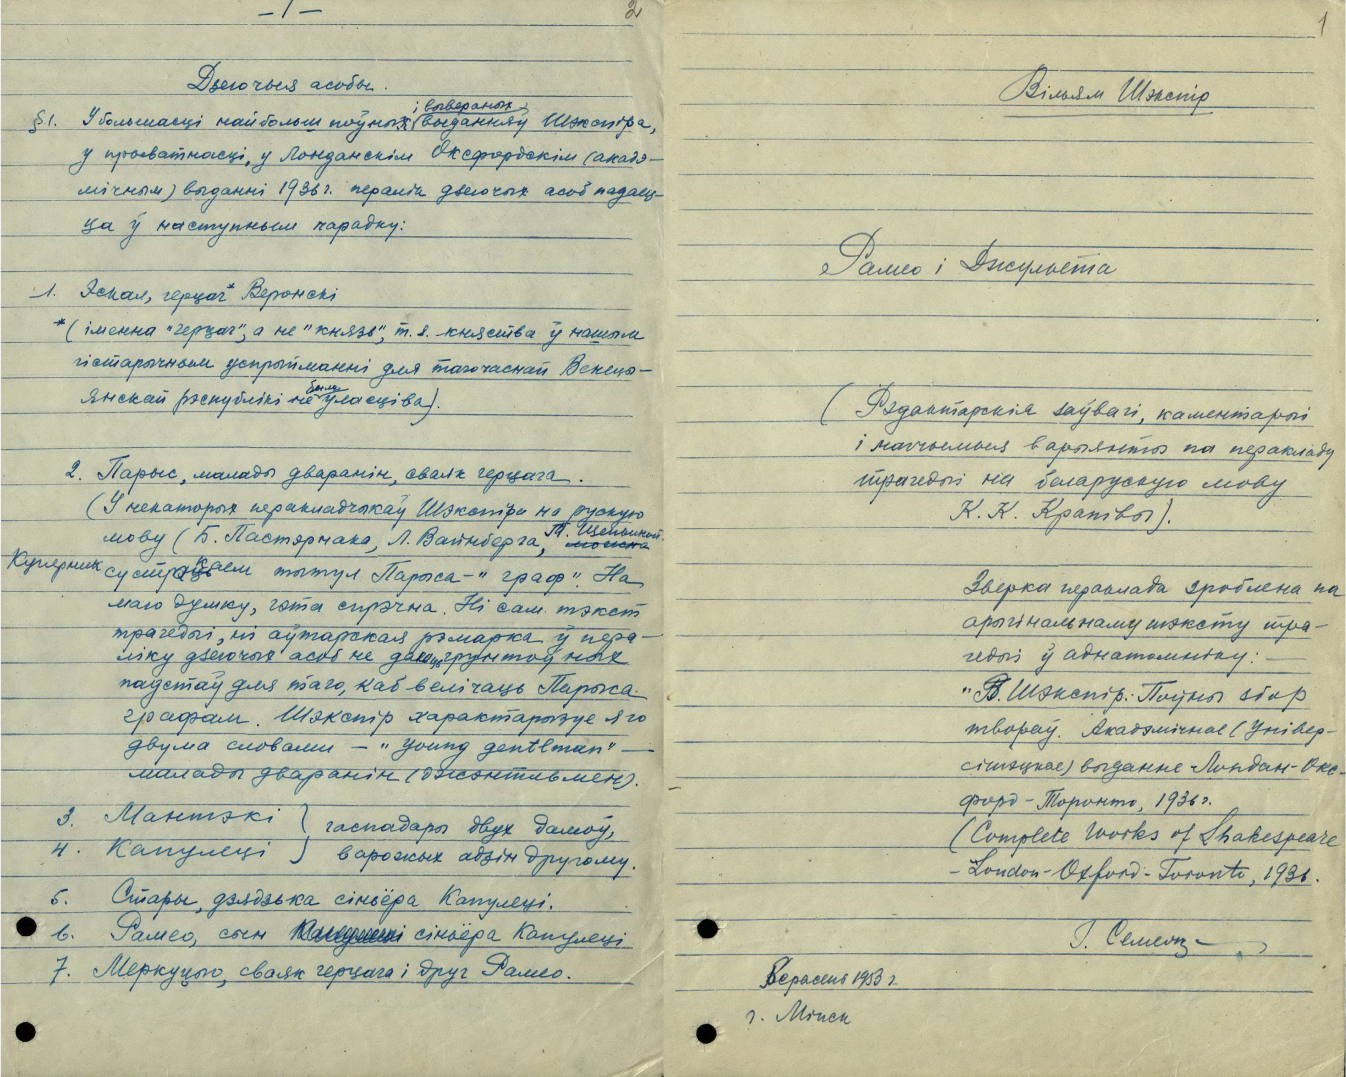 — 1 —
2
Дзеючыя асобы.
і вывераных
§1. У большасці найбольш поўных выданняў Шэкспіра,
у прыватнасці, у Лонданскім Оксфордскім (акадэ-
мічным) выданні 1936 г. пералік дзеючых асоб падаец-
ца ў наступным парадку:
1. Эскал, герцаг* Веронскі
*(іменна "герцаг", а не "князь", т.я. княства ў нашым
гістарычным успрыйманні для тагочаснай Венецы-
было
янскай рэспублікі не ўласціва).
2. Парыс, малады дваранін, сваяк герцага.
(У некаторых перакладчыкаў Шэкспіра на рускую
мову (Б. Пастэрнака, Л. Вайнберга, Т. Щепкиной-
Куперник сустракаем тытул Парыса - "граф". На
маю думку, гэта спрэчна. Ні сам тэкст
трагедыі, ні аўтарская рэмарка ў пера-
ліку дзеючых асоб не даюць грунтоўных
падстаў для таго, каб велічаць Парыса
графам. Шэкспір характарызуе яго
двума словамі — "young gentlman" —
малады дваранін (джэнтльмен).
3. Мантэкі } гаспадары двух дамоў,
4. Капулеці } варожых адзін другому.
5. Стары, дзядзька сіньёра Капулеці.
6. Рамео, сын сіньёра Капулеці
7. Меркуцыо, сваяк герцага і друг Рамео.
1
Вільям Шэкспір
Рамео і Джульета
(Рэдактарскія заўвагі, каментарыі
і магчымыя варыянты па перакладу
трагедыі на беларускую мову
К. К. Крапівы).
Зверка пераклада зроблена па
арыгінальнаму тэксту тра-
гедыі ў аднатомніку: —
"В. Шэкспір: Поўны збор
твораў. Акадэмічнае (Універ-
сітэцкае) выданне - Лондан - Окс-
форд - Торонто, 1936 г.
(Complete Works of Shakespeare
- London - Oxford - Toronto, 1936.
Г. Семеоц
Верасень 1953 г.
г. Мінск